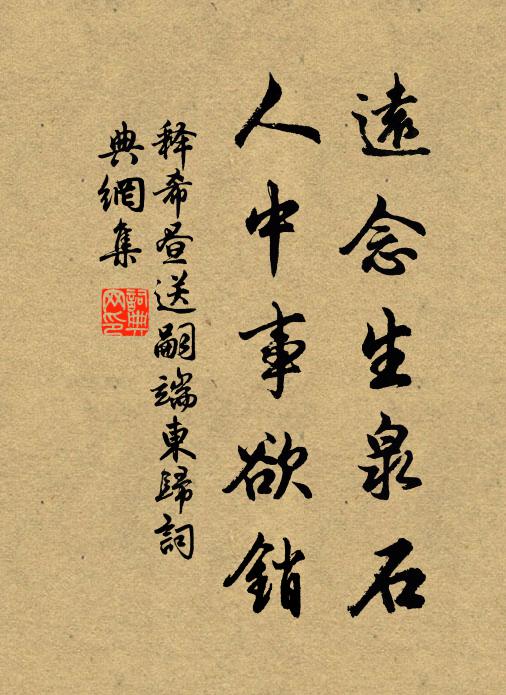 遠念生泉石
人中事欲銷
释希昼送嗣端東歸詞
典網集
詞典網印